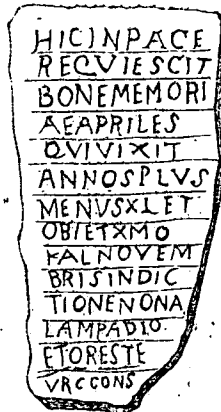 HICINPACE
REQVIESCIT
BONEMEMORI
AEAPRILES
QVIVIXIT
ANNOSPLVS
MENUSXLET
OBIETXMO
KALNOVEM
BRISINDIC
TIONENONA
LAMPADIO.
ETORESTE
VRCCONS